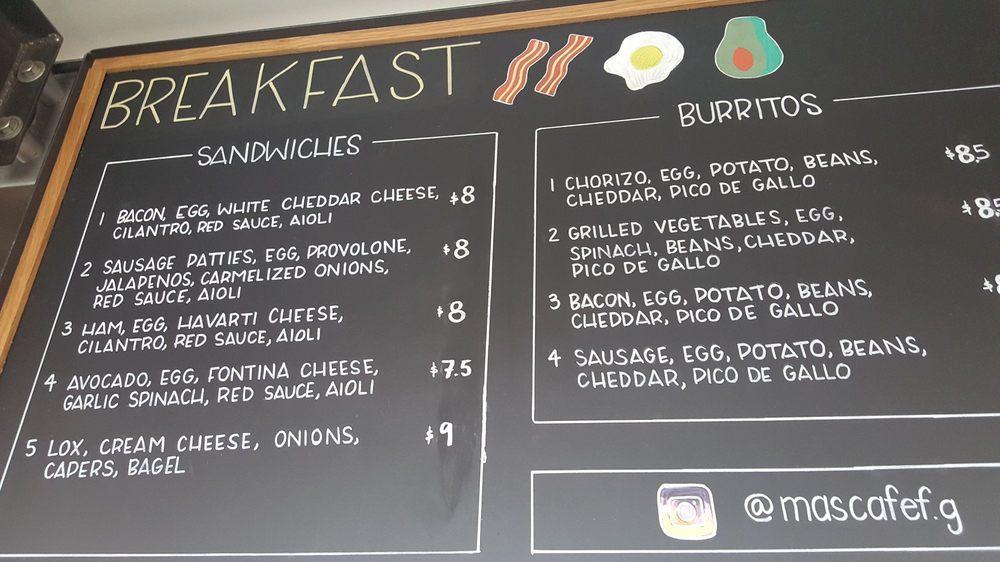 BREAKFAST
SANDWICHES
1 BACON, EGG, WHITE CHEDDAR CHEESE, $8
CILANTRO, RED SAUCE, AIOLI
2 SAUSAGE PATTIES, EGG, PROVOLONE, $8
JALAPENOS, CARMELIZED ONIONS,
RED SAUCE, AIOLI
3 HAM, EGG, HAVARTI CHEESE, $8
CILANTRO, RED SAUCE, AIOLI
4 AVOCADO, EGG, FONTINA CHEESE, $7.5
GARLIC SPINACH, RED SAUCE, AIOLI
5 LOX, CREAM CHEESE, ONIONS, $9
CAPERS, BAGEL
BURRITOS
1 CHORIZO, EGG, POTATO, BEANS, $8.5
CHEDDAR, PICO DE GALLO
2 GRILLED VEGETABLES, EGG, $8.5
SPINACH, BEANS, CHEDDAR,
PICO DE GALLO
3 BACON, EGG, POTATO, BEANS,
CHEDDAR, PICO DE GALLO
4 SAUSAGE, EGG, POTATO, BEANS,
CHEDDAR, PICO DE GALLO
@mascafef.g